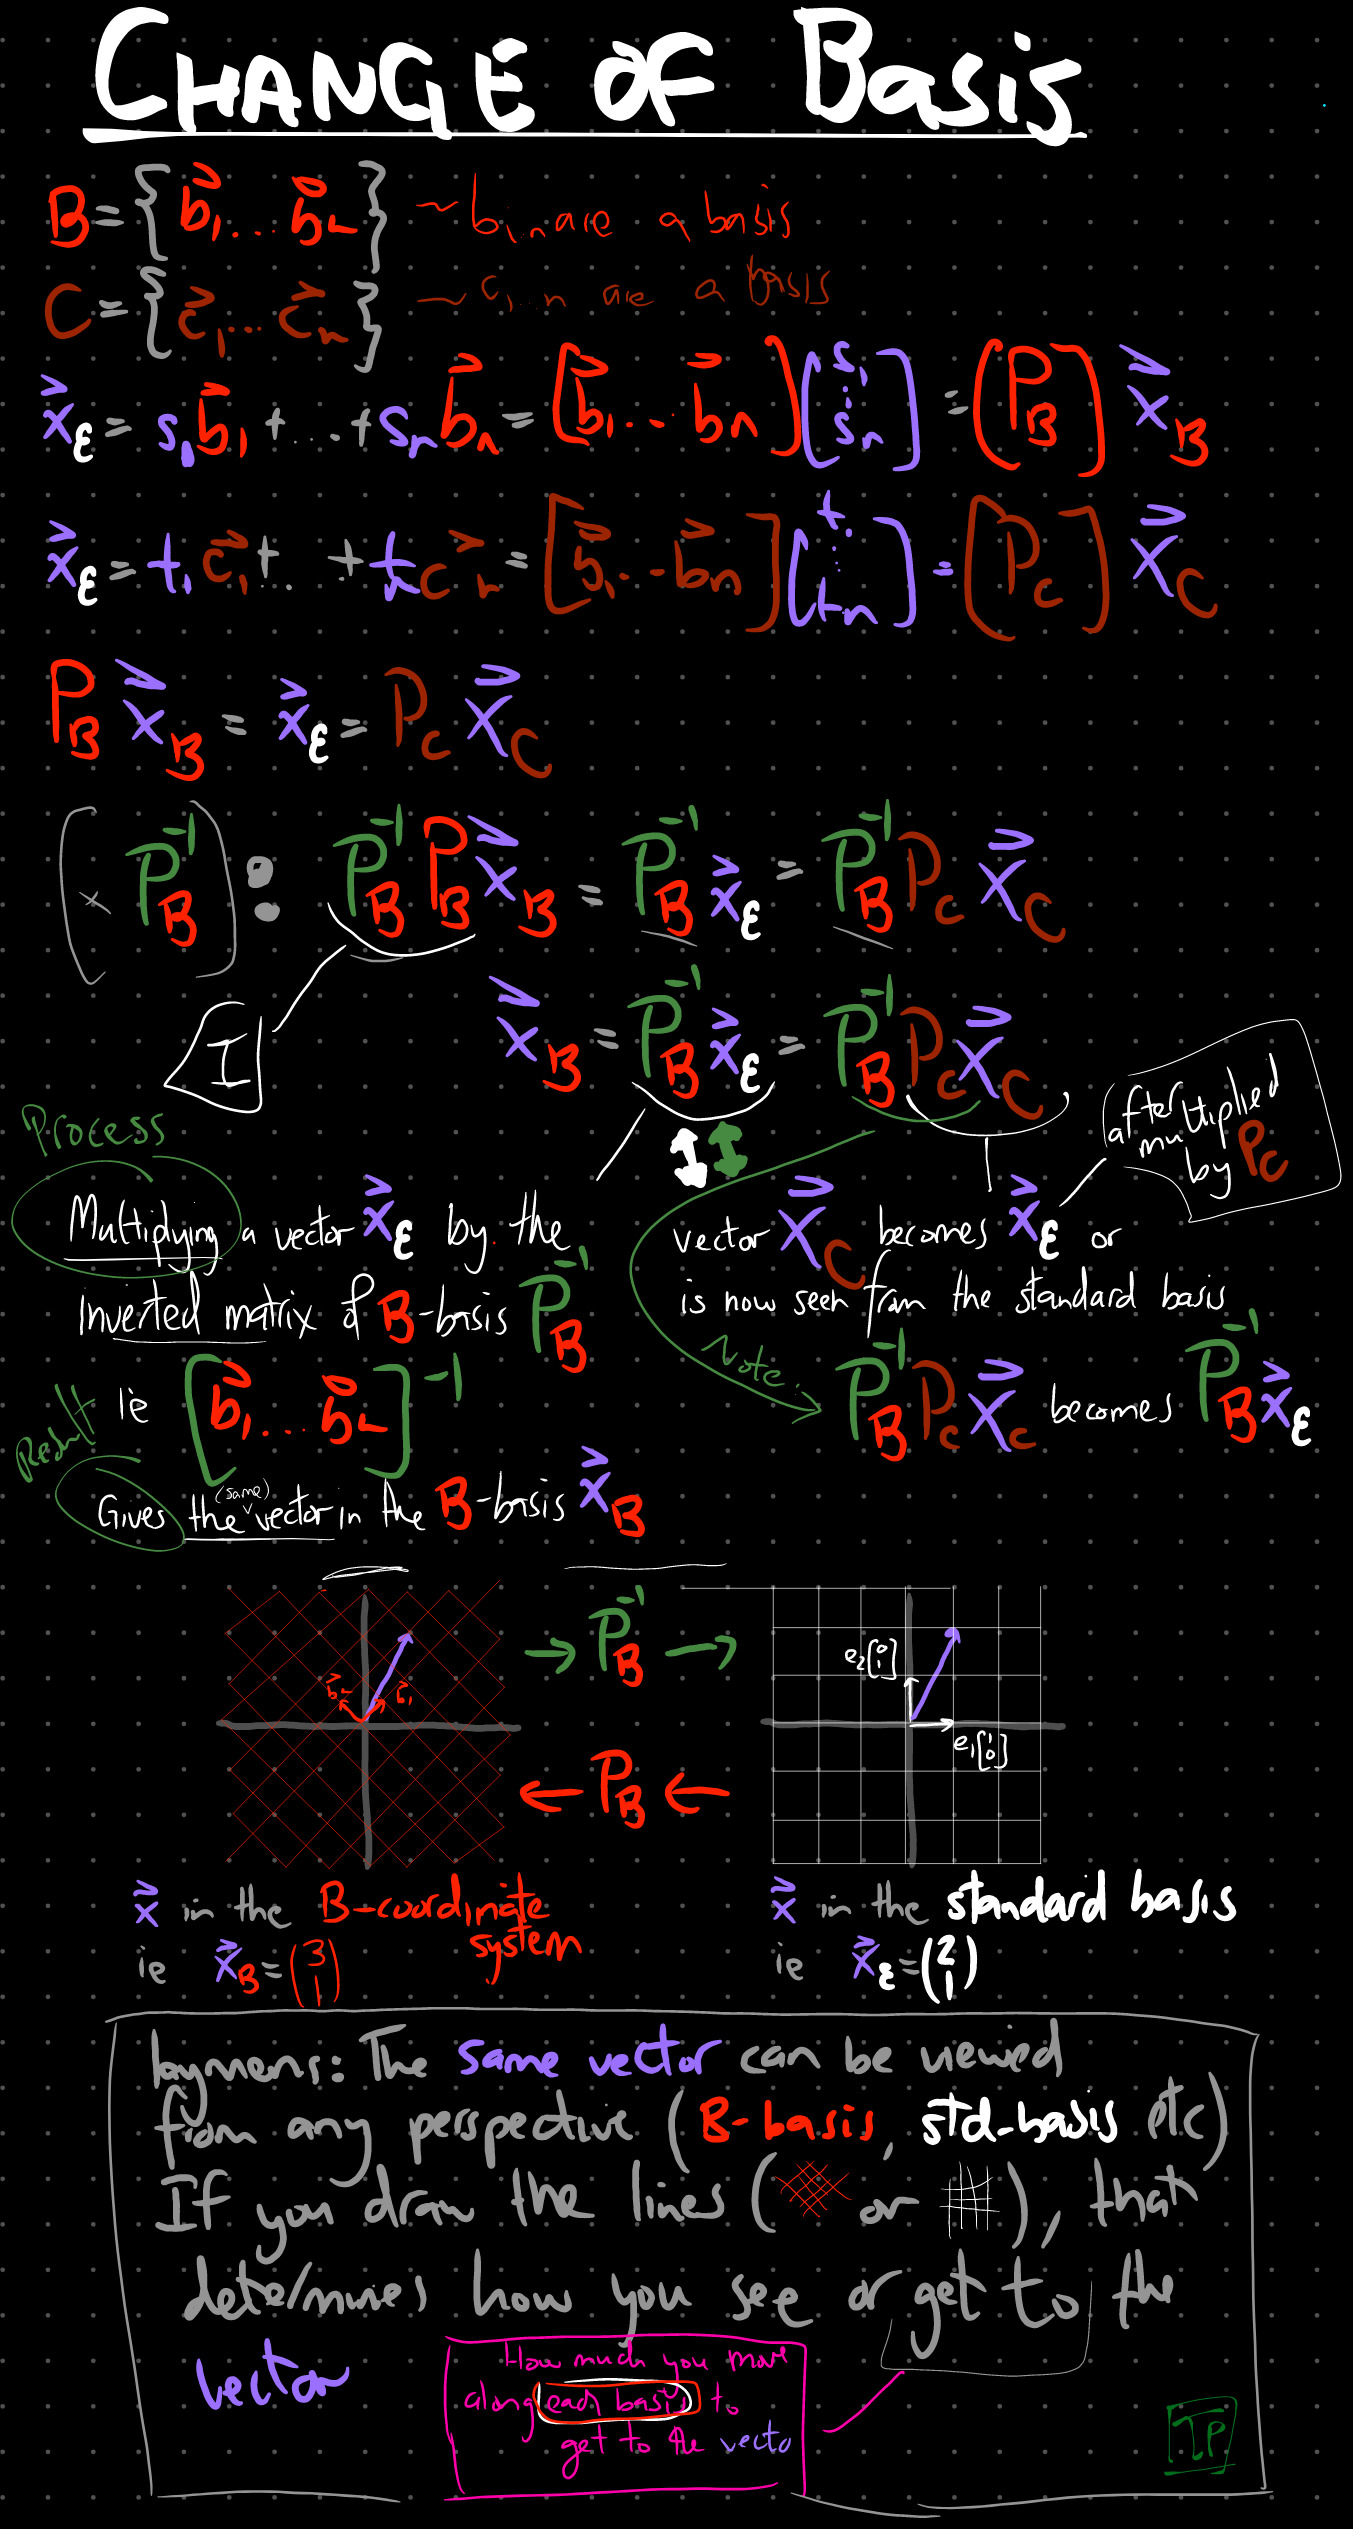 CHANGE OF Basis
B = { b⃗₁ ... b⃗ₙ } ~ b₁,ₙ are a basis
C = { c⃗₁ ... c⃗ₙ } ~ c₁...n are a basis
x⃗_ε = s₁ b⃗₁ + ... + sₙ b⃗ₙ = [ b⃗₁ ... b⃗ₙ ] [ s₁ ⋮ sₙ ] = ( P_B ) x⃗_B
x⃗_ε = t₁ c⃗₁ + .. + tₙ c⃗ₙ = [ b⃗₁ .. - b⃗ₙ ] [ t₁ ⋮ tₙ ] = ( P_C ) x⃗_C
P_B x⃗_B = x⃗_ε = P_C x⃗_C
( × P_B⁻¹ ) : P_B⁻¹ P_B x⃗_B = P_B⁻¹ x⃗_ε = P_B⁻¹ P_C x⃗_C
I
x⃗_B = P_B⁻¹ x⃗_ε = P_B⁻¹ P_C x⃗_C
after
multiplied
by P_C
Process
Multiplying a vector x⃗_ε by the
Inverted matrix of B-basis P_B⁻¹
ie [ b⃗₁ ... b⃗ₙ ]⁻¹
Result
Gives the (same) vector in the B-basis x⃗_B
vector x⃗_C becomes x⃗_ε or
is now seen from the standard basis
Note:
P_B⁻¹ P_C x⃗_C becomes P_B⁻¹ x⃗_ε
b⃗₂ b⃗₁
→ P_B⁻¹ →
← P_B ←
e₂ [ 0 1 ]
e₁ [ 1 0 ]
x⃗ in the B-coordinate
system
ie x⃗_B = ( 3 1 )
x⃗ in the standard basis
ie x⃗_ε = ( 2 1 )
laymens: The same vector can be viewed
from any perspective ( B-basis, std-basis etc)
If you draw the lines ( or ), that
determines how you see or get to the
vector
How much you move
along each basis to
get to the vecto
TP